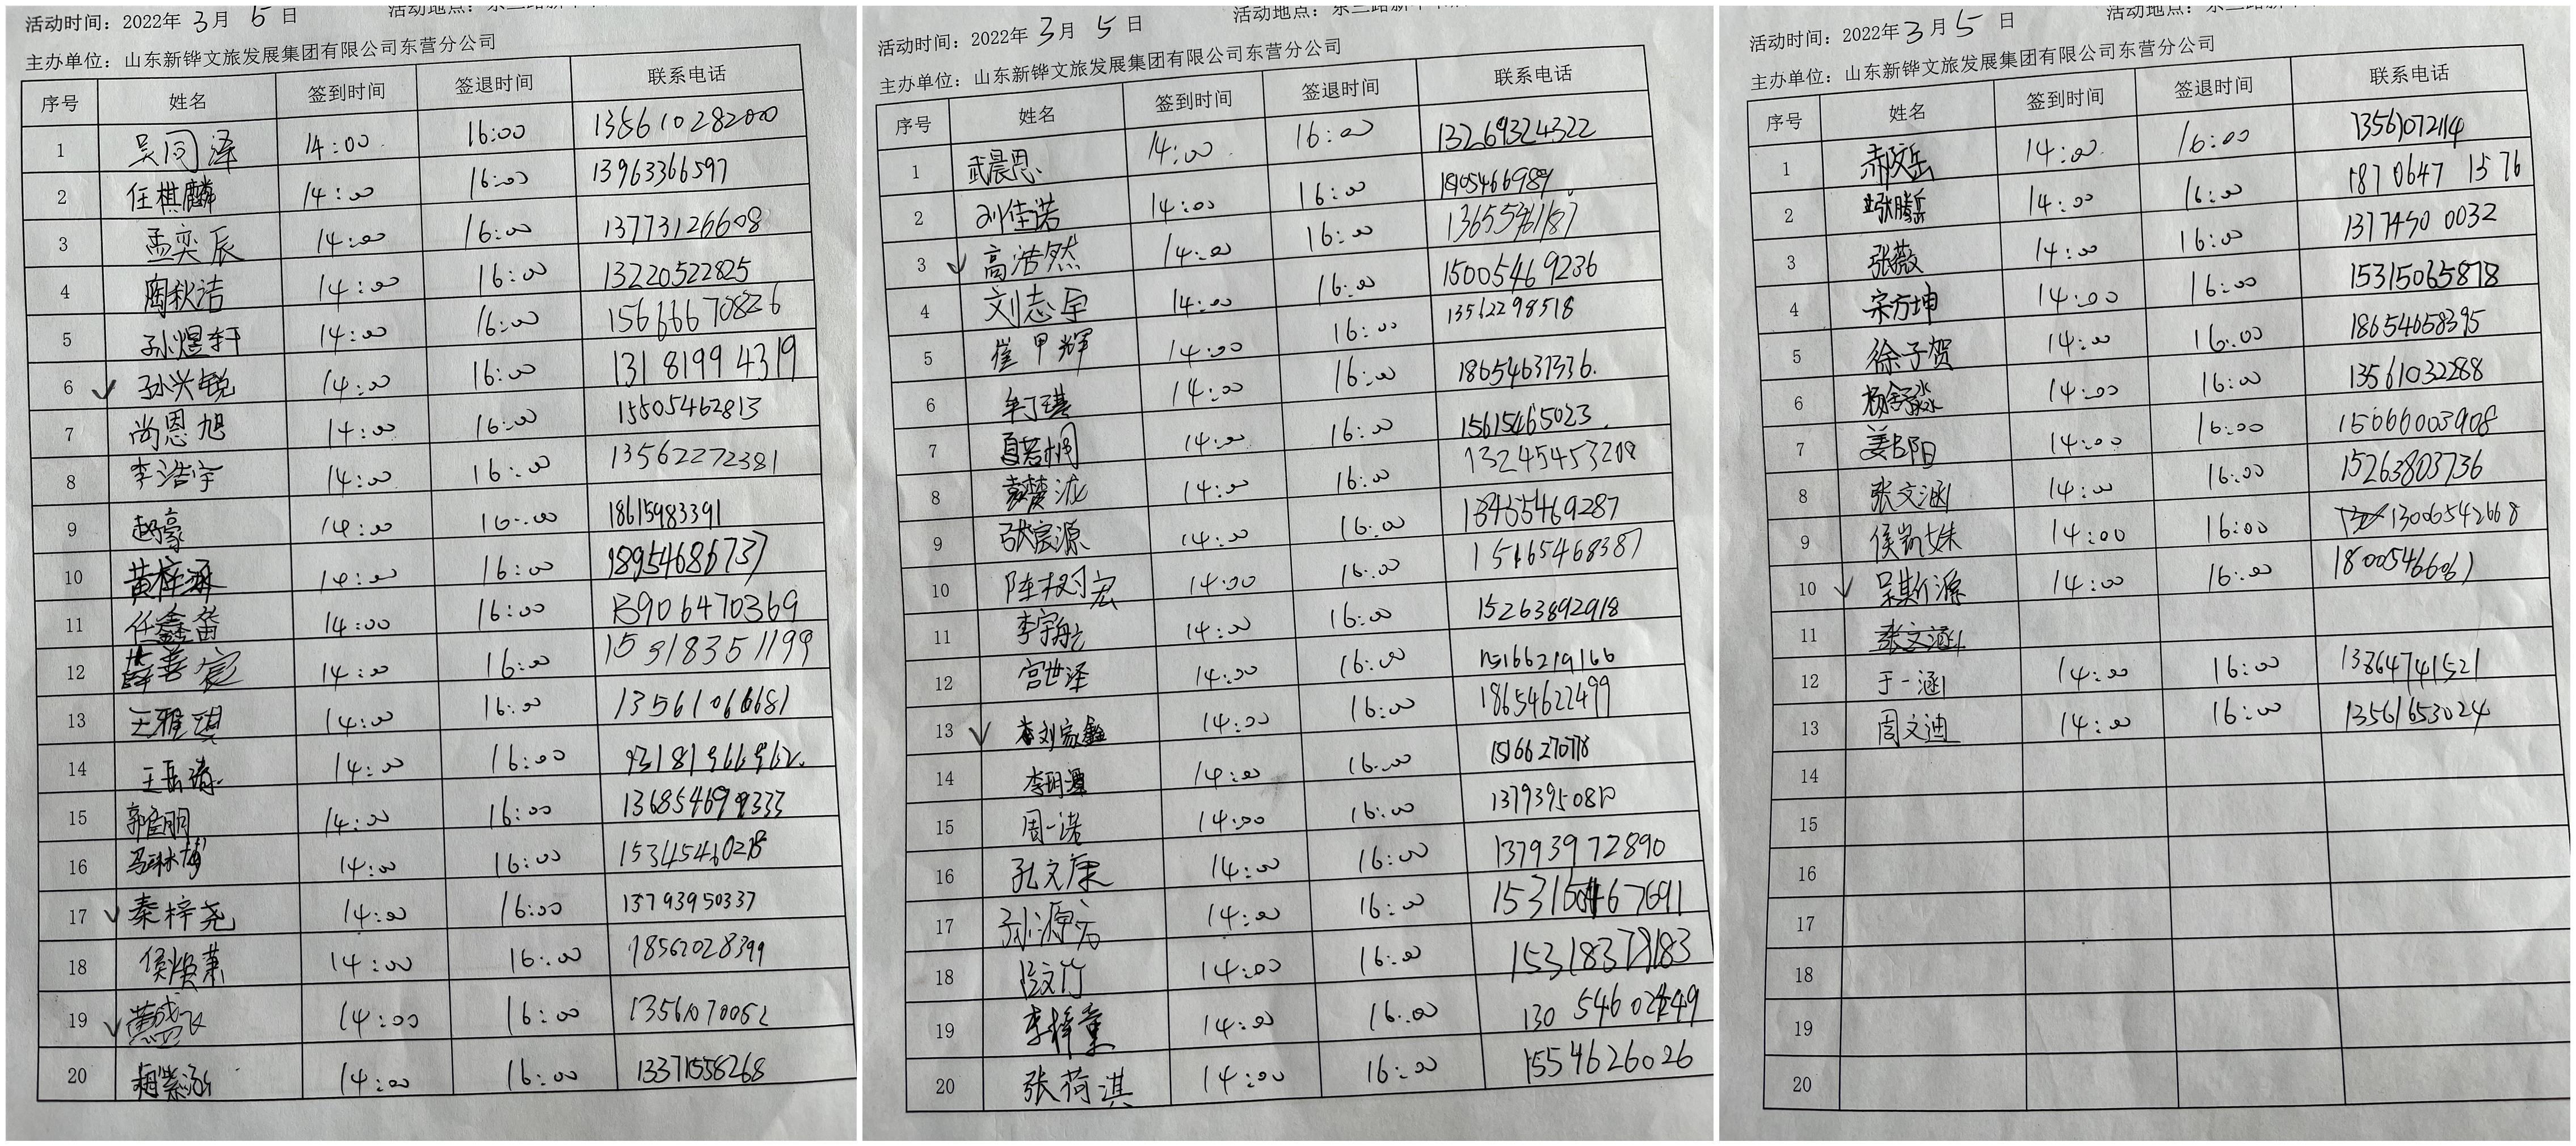 活动时间：2022年 3月 5日
主办单位：山东新铧文旅发展集团有限公司东营分公司
序号 姓名 签到时间 签退时间 联系电话
1 吴同泽 14:00 16:00 135610282000
2 任棋麟 14:00 16:00 13963366597
3 孟奕辰 14:00 16:00 13773126608
4 陶秋洁 14:00 16:00 13220522825
5 孙煜轩 14:00 16:00 15666670826
6 孙兴锐 14:00 16:00 13181994319
7 尚恩旭 14:00 16:00 15505462813
8 李浩宇 14:00 16:00 13562272381
9 赵豪 14:00 16:00 18615983391
10 黄梓涵 14:00 16:00 18954686737
11 任鑫 14:00 16:00 13906470369
12 薛善宸 14:00 16:00 15318351199
13 王雅琪 14:00 16:00 13561066681
14 14:00 16:00
15 14:00 16:00
16 马琳博 14:00 16:00
17 秦梓尧 14:00 16:00 13793950337
18 14:00 16:00 18562028399
19 14:00 16:00 13561070062
20 14:00 16:00 13371558268
活动时间：2022年 3月 5日
主办单位：山东新铧文旅发展集团有限公司东营分公司
序号 姓名 签到时间 签退时间 联系电话
1 武晨恩 14:00 16:00 13269324322
2 刘佳诺 14:00 16:00
3 高浩然 14:00 16:00
4 刘志宇 14:00 16:00 15005469236
5 崔甲辉 14:00 16:00 13562298518
6 牟丁琪 14:00 16:00 18654637336
7 夏若桐 14:00 16:00 15615465023
8 14:00 16:00 13245453208
9 张宸源 14:00 16:00 18455469287
10 陈树宏 14:00 16:00 15165468387
11 李宇航 14:00 16:00 15263892918
12 宫世泽 14:00 16:00 15166219166
13 刘家鑫 14:00 16:00 18654622499
14 14:00 16:00 15166270778
15 周一诺 14:00 16:00
16 孔文康 14:00 16:00 13793972890
17 14:00 16:00
18 14:00 16:00
19 李梓童 14:00 16:00
20 张荷淇 14:00 16:00 1554626026
活动时间：2022年 3月 5日
主办单位：山东新铧文旅发展集团有限公司东营分公司
序号 姓名 签到时间 签退时间 联系电话
1 14:00 16:00 13561072114
2 14:00 16:00 187 0647 1576
3 张薇 14:00 16:00
4 宋方坤 14:00 16:00 15315065878
5 徐子贺 14:00 16:00 18654658395
6 14:00 16:00 13561032288
7 14:00 16:00 15066003908
8 张文涵 14:00 16:00 15263803736
9 侯凯姝 14:00 16:00 13006542668
10 吴斯源 14:00 16:00 18005466061
11 张文涵
12 于一涵 14:00 16:00 13864741521
13 周文迪 14:00 16:00 13561653024
14
15
16
17
18
19
20